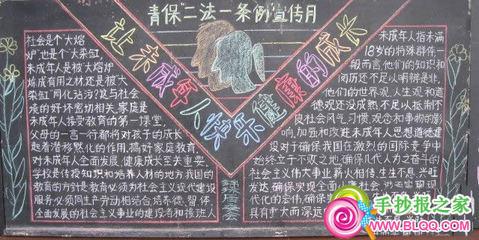 青保二法一条例宣传月
让未成年人快乐健康的成长
社会是个大熔
炉,也是个大染缸,
未成年人是被大熔炉
炼成有用之材还是被大
染缸同化玷污?这与社会环
境的好坏密切相关,家庭是
未成年人接受教育的第一课堂,
父母的一言一行都将对孩子的成长
起着潜移默化的作用,搞好家庭教育
对未成年人全面发展、健康成长至关重要。
学校是传授知识和培养人材的地方,我国的
教育的方针是:教育必须为社会主义现代建设
服务必须同生产劳动相结合培养德、智、体
全面发展的社会主义事业的建设者和接班人
未成年人指未满
18岁的特殊群体一
段而言他们的知识和
阅历还不足以明辨是非,
他们的世界观、人生观和道
德观还没成熟不足以抵制不
良社会风气习惯观念和事物的影
响,加强和改进未成年人思想道德建
设对于确保我国在激烈的国际竞争中
始终立于不败之地确保几代人为之奋斗的
社会主义伟大事业薪火相传,生生不息,兴旺
发达,确保实现全面
代化的宏伟
具有重大而深远
手抄报之家